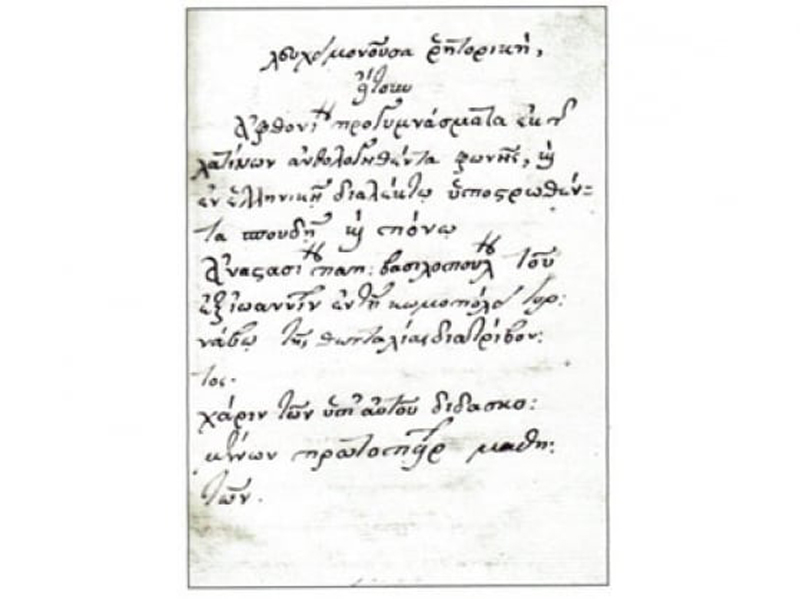 ῥητορικὴ,
ἤτοι
Ἀφθονίου προγυμνάσματα ἐκ τῆς
λατίνων ἀνθολογηθέντα φωνῆς, καὶ
ἐν ἑλληνικῇ διαλέκτῳ
τα σπουδῇ καὶ πόνῳ
Ἀναστασίου παπᾶ: βασιλοπούλου τοῦ
ἐξ ἰωαννίνων ἐν τῇ κωμοπόλει τορ:
νάβῳ τῆς θετταλίας διατρίβον:
τος.
χάριν τῶν ὑπ' αὐτοῦ διδασκο:
μένων πρωτοπείρων μαθη:
τῶν.